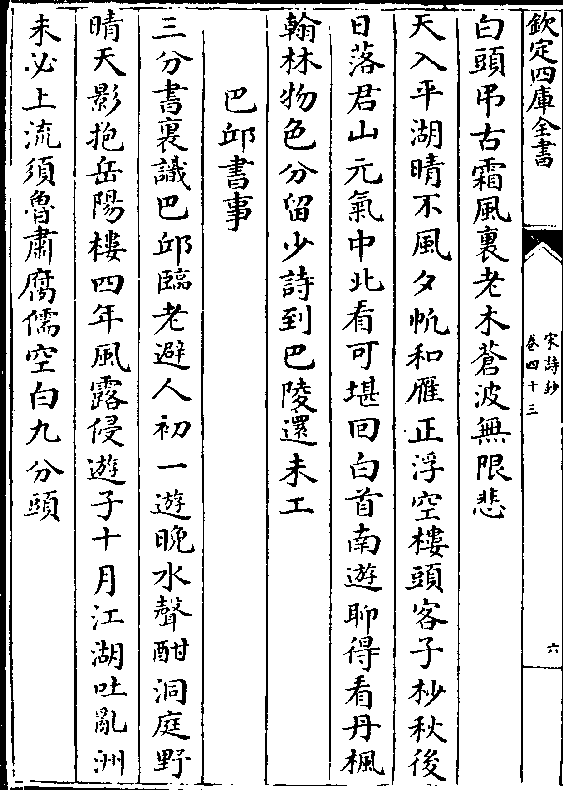 欽定四庫全書
宋詩鈔
卷四十三
六
白頭弔古霜風裏老木蒼波無限悲
天入平湖晴不風夕帆和雁正浮空樓頭客子杪秋後
日落君山元氣中北看可堪回白首南遊聊得看丹楓
翰林物色分留少詩到巴陵還未工
巴邱書事
三分書裏識巴邱臨老避人初一遊晚水聲酣洞庭野
晴天影抱岳陽樓四年風露侵遊子十月江湖吐亂洲
未必上流須魯肅腐儒空白九分頭